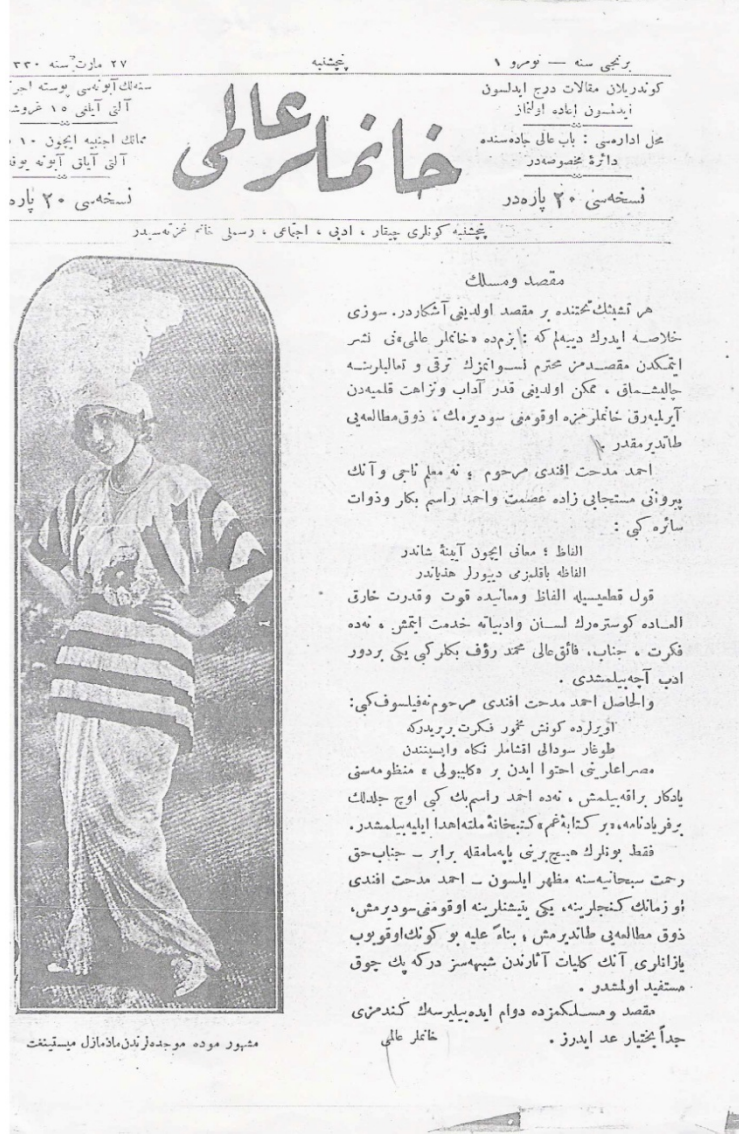 برنجی سنه — نومرو ۱
پنجشنبه
۲۷ مارت سنه ۳۳۰
كوندریلان مقالات درج ایدلسون
ایدلمسون اعاده اولنماز
محل اداره‌سی : باب عالی جاده‌سنده
دائرهٔ مخصوصه‌در
نسخه‌سی ۲۰ پاره‌در
خانملر عالمی
سنه‌لك آبونه‌سی پوسته اجر
آلتی آیلغی ۱۵ غروش
ممالك اجنبیه ایچون ۱۰
آلتی آیلق آبونه یوق
نسخه‌سی ۲۰ پاره
پنجشنبه كونلری چیقار ، ادبی ، اجتماعی ، رسملی خانم غزته‌سیدر
مقصد ومسلك
هر تشبثك تحتنده بر مقصد اولدیغی آشكاردر. سوزی
خلاصه ایدرك دییه‌لم كه : بزم‌ده «خانملر عالمی»نی نشر
ایتمكدن مقصدمز محترم نسوانمزك ترقی و تعالیلرینه
چالیشمق ، ممكن اولدیغی قدر آداب ونزاهت قلمیه‌دن
آیرلمیه‌رق خانملرمزه اوقومغی سودیرمك ، ذوق مطالعه‌یی
طاتدیرمقدر .
احمد مدحت افندی مرحوم ؛ نه معلم ناجی وآنك
پیروانی مستجابی زاده عصمت واحمد راسم بكلر وذوات
سائره كبی :
الفاظ ؛ معانی ایچون آیینهٔ شاندر
الفاظه باقلمزمی دییورلر هذیاندر
قول قطعیسیله الفاظ ومعانیده قوت وقدرت خارق
العاده كوستره‌رك لسان وادبیاته خدمت ایتمش ، نه‌ده
فكرت ، جناب، فائق عالی محمد رؤف بكلر كبی یكی بردور
ادب آچه‌بیلمشدی .
والحاصل احمد مدحت افندی مرحوم نه فیلسوف كبی:
آویرلرده كونش مخمور فكرت بر پریدركه
طوغار سودالی اقشاملر نكاه واپسیندن
مصراعلرینی احتوا ایدن بر «كلیبولی » منظومه‌سنی
یادكار براقه‌بیلمش ، نه‌ده احمد راسم بك كبی اوچ جلدلك
برفریادنامه، «بر كتابهٔ غم» كتبخانهٔ ملته اهدا ایلیه‌بیلمشدر.
فقط بونلرك هیچ برینی یاپه‌مامقله برابر — جناب حق
رحمت سبحانیه‌سنه مظهر ایلسون — احمد مدحت افندی
او زمانك كنجلرینه، یكی یتیشنلرینه اوقومغی سودیرمش،
ذوق مطالعه‌یی طاتدیرمش ؛ بناءً علیه بو كونك اوقویوب
یازانلری آنك كلیات آثارندن شبهه‌سز دركه پك چوق
مستفید اولمشدر .
مقصد ومسلكمزده دوام ایده‌بیلیرسه‌ك كندمزی
جداً بختیار عد ایدرز .
خانملر عالمی
مشهور موده موجده‌لرندن مادمازل میستینغت